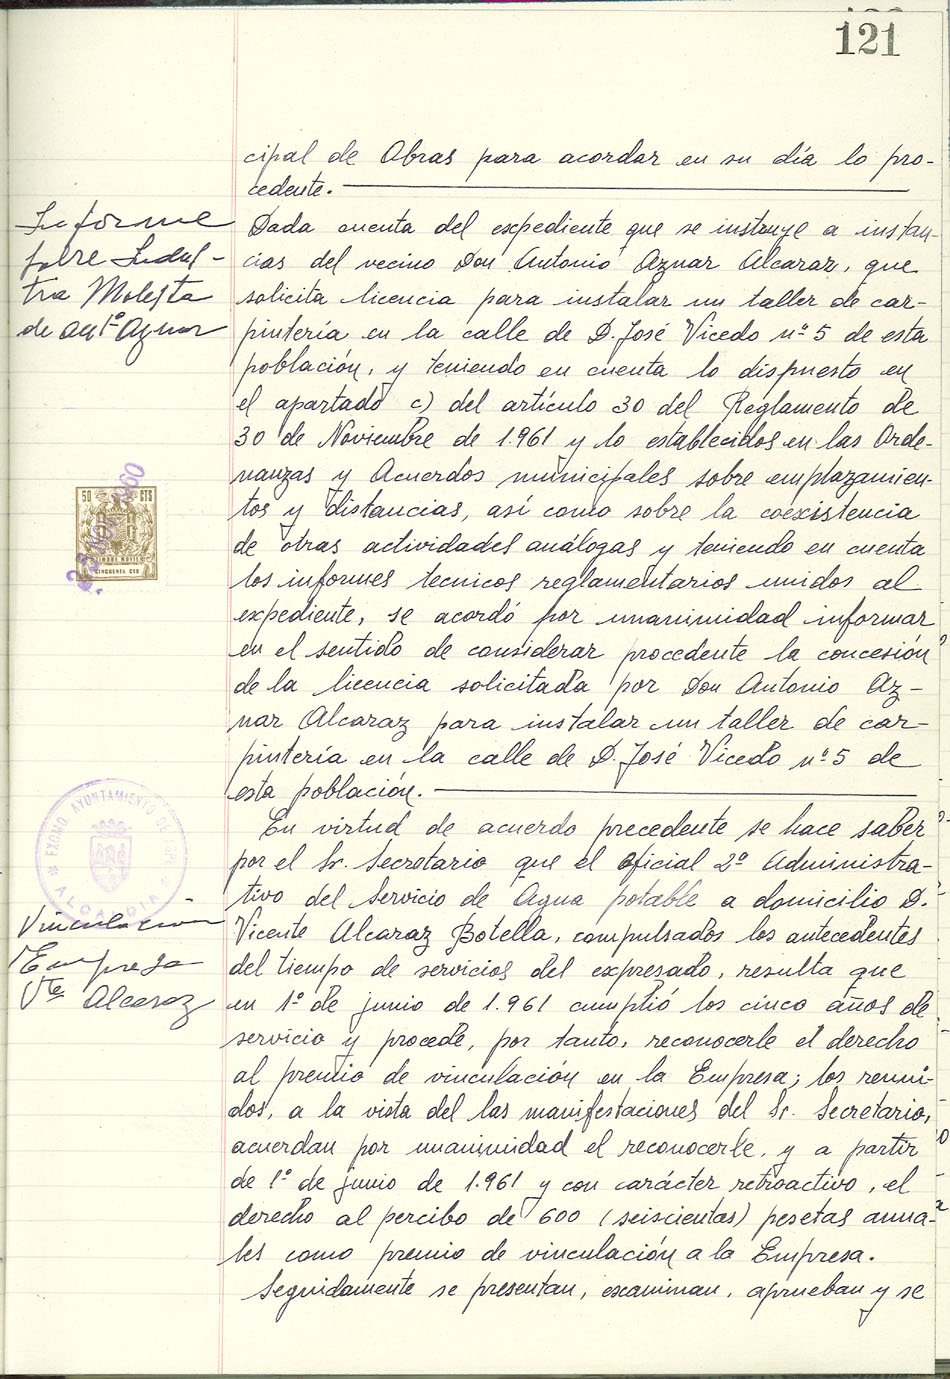 121
cipal de Obras para acordar en su día lo pro-
cedente.
Informe
sobre Indus-
tria Molesta
de Antº Aznar
Dada cuenta del expediente que se instruye a instan-
cias del vecino Don Antonio Aznar Alcaraz, que
solicita licencia para instalar un taller de car-
pintería en la calle de D. José Vicedo nº 5 de esta
población, y teniendo en cuenta lo dispuesto en
el apartado c) del artículo 30 del Reglamento de
30 de Noviembre de 1.961 y lo establecidos en las Orde-
nanzas y Acuerdos municipales sobre emplazamien-
tos y distancias, así como sobre la coexistencia
de otras actividades análogas y teniendo en cuenta
los informes tecnicos reglamentarios unidos al
expediente, se acordó por unanimidad informar
en el sentido de considerar procedente la concesión
de la licencia solicitada por Don Antonio Az-
nar Alcaraz para instalar un taller de car-
pintería en la calle de D. José Vicedo nº 5 de
esta población.
50 CTS
TIMBRE MOVIL
CINCUENTA CTS
23 NOV 1960
EXCMO AYUNTAMIENTO DE
ALCALDIA
Vinculación
Empresa
Vte Alcaraz
En virtud de acuerdo precedente se hace saber
por el Sr. Secretario que el Oficial 2º Administra-
tivo del Servicio de Agua potable a domicilio D.
Vicente Alcaraz Botella, compulsados los antecedentes
del tiempo de servicios del expresado, resulta que
en 1º de junio de 1.961 cumplió los cinco años de
servicio y procede, por tanto, reconocerle el derecho
al premio de vinculación en la Empresa; los reuni-
dos, a la vista del las manifestaciones del Sr. Secretario,
acuerdan por unanimidad el reconocerle, y a partir
de 1º de junio de 1.961 y con carácter retroactivo, el
derecho al percibo de 600 (seiscientas) pesetas anua-
les como premio de vinculación a la Empresa.
Seguidamente se presentan, examinan, aprueban y se